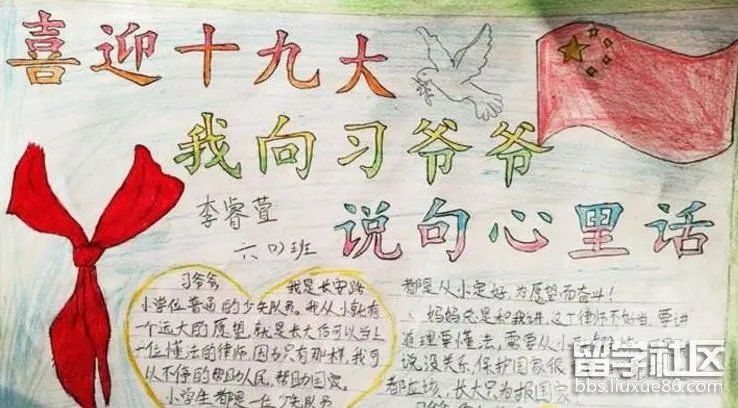 喜迎十九大
我向习爷爷
说句心里话
李睿萱
六(1)班
习爷爷 我是长安路
小学位普通的少先队员。我从小就有
一个远大的愿望,就是长大后可以当上
一位懂法的律师,因为只有那样,我可
以不停的帮助人民,帮助国家。
小学生都是一位少先队员
都是从小定好,为愿望而奋斗!
妈妈总是和我讲,这了律师不如当,要讲
道理要懂法,需要从小
说没关系,保护国家很
都应该,长大只为报国家
留学社区
bbs.liuxue86.com